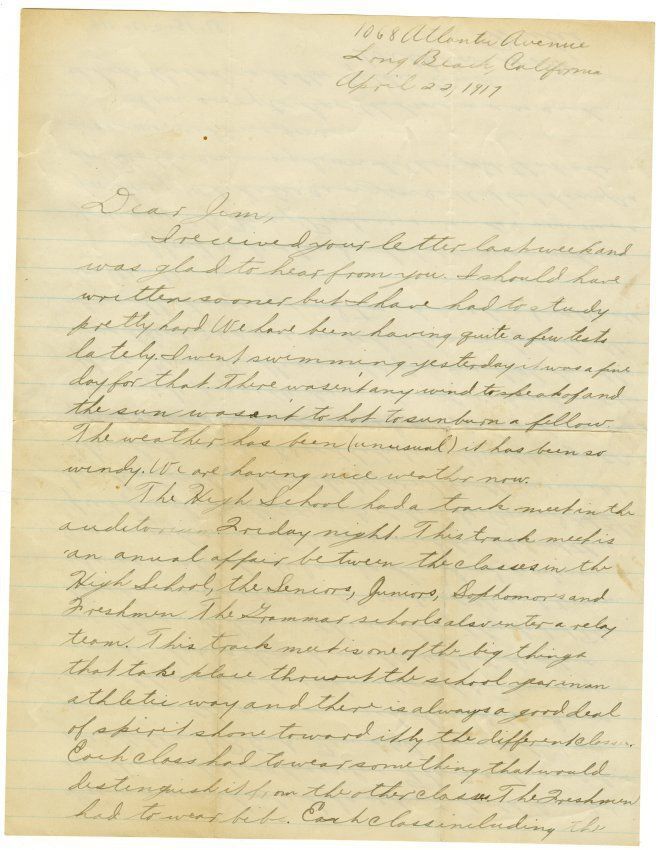 1068 Atlantic Avenue
Long Beach, California
April 22, 1917
Dear Jim,
I received your letter last week and
was glad to hear from you. I should have
written sooner but I have had to study
pretty hard We have been having quite a few tests
lately. I went swimming yesterday it was a fine
day for that. There wasen't any wind to speak of and
the sun wasen't to hot to sunburn a fellow.
The weather has been (unusual) it has been so
windy. We are having nice weather now.
The High School had a track meet in the
auditorium Friday night. This track meet is
an anual affair between the classes in the
High School, the Seniors, Juniors, Sophomors and
Freshmen The Grammar schools also enter a relay
team. This track meet is one of the big things
that take place thruout the school year in an
athletic way and there is always a good deal
of spirit shone toward it by the different classes.
Each class had to wear something that would
destinguish it from the other classes The Freshmen
had to wear bibs. Each class including the